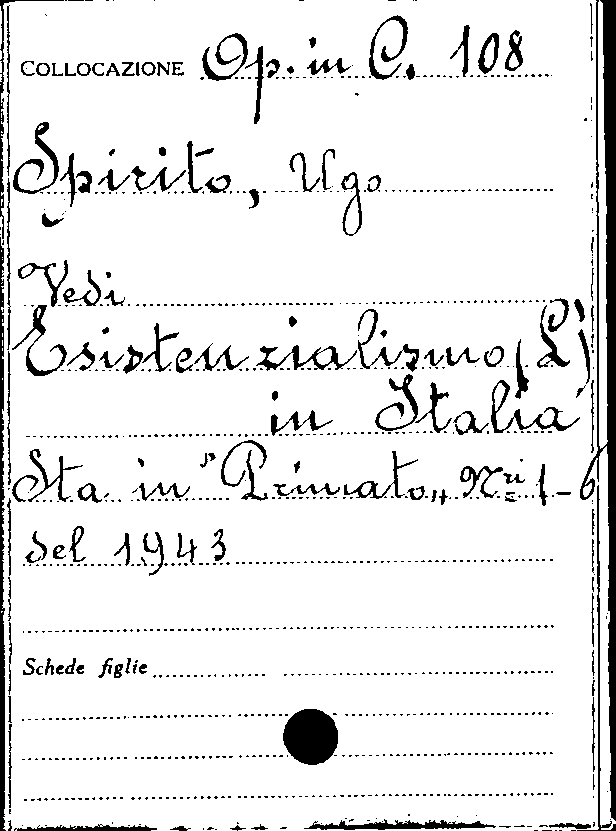 COLLOCAZIONE Op. in C. 108
Spirito, Ugo
Vedi
Esistenzialismo (L')
in Italia
Sta in "Primato" Nri 1-6
del 1943
Schede figlie